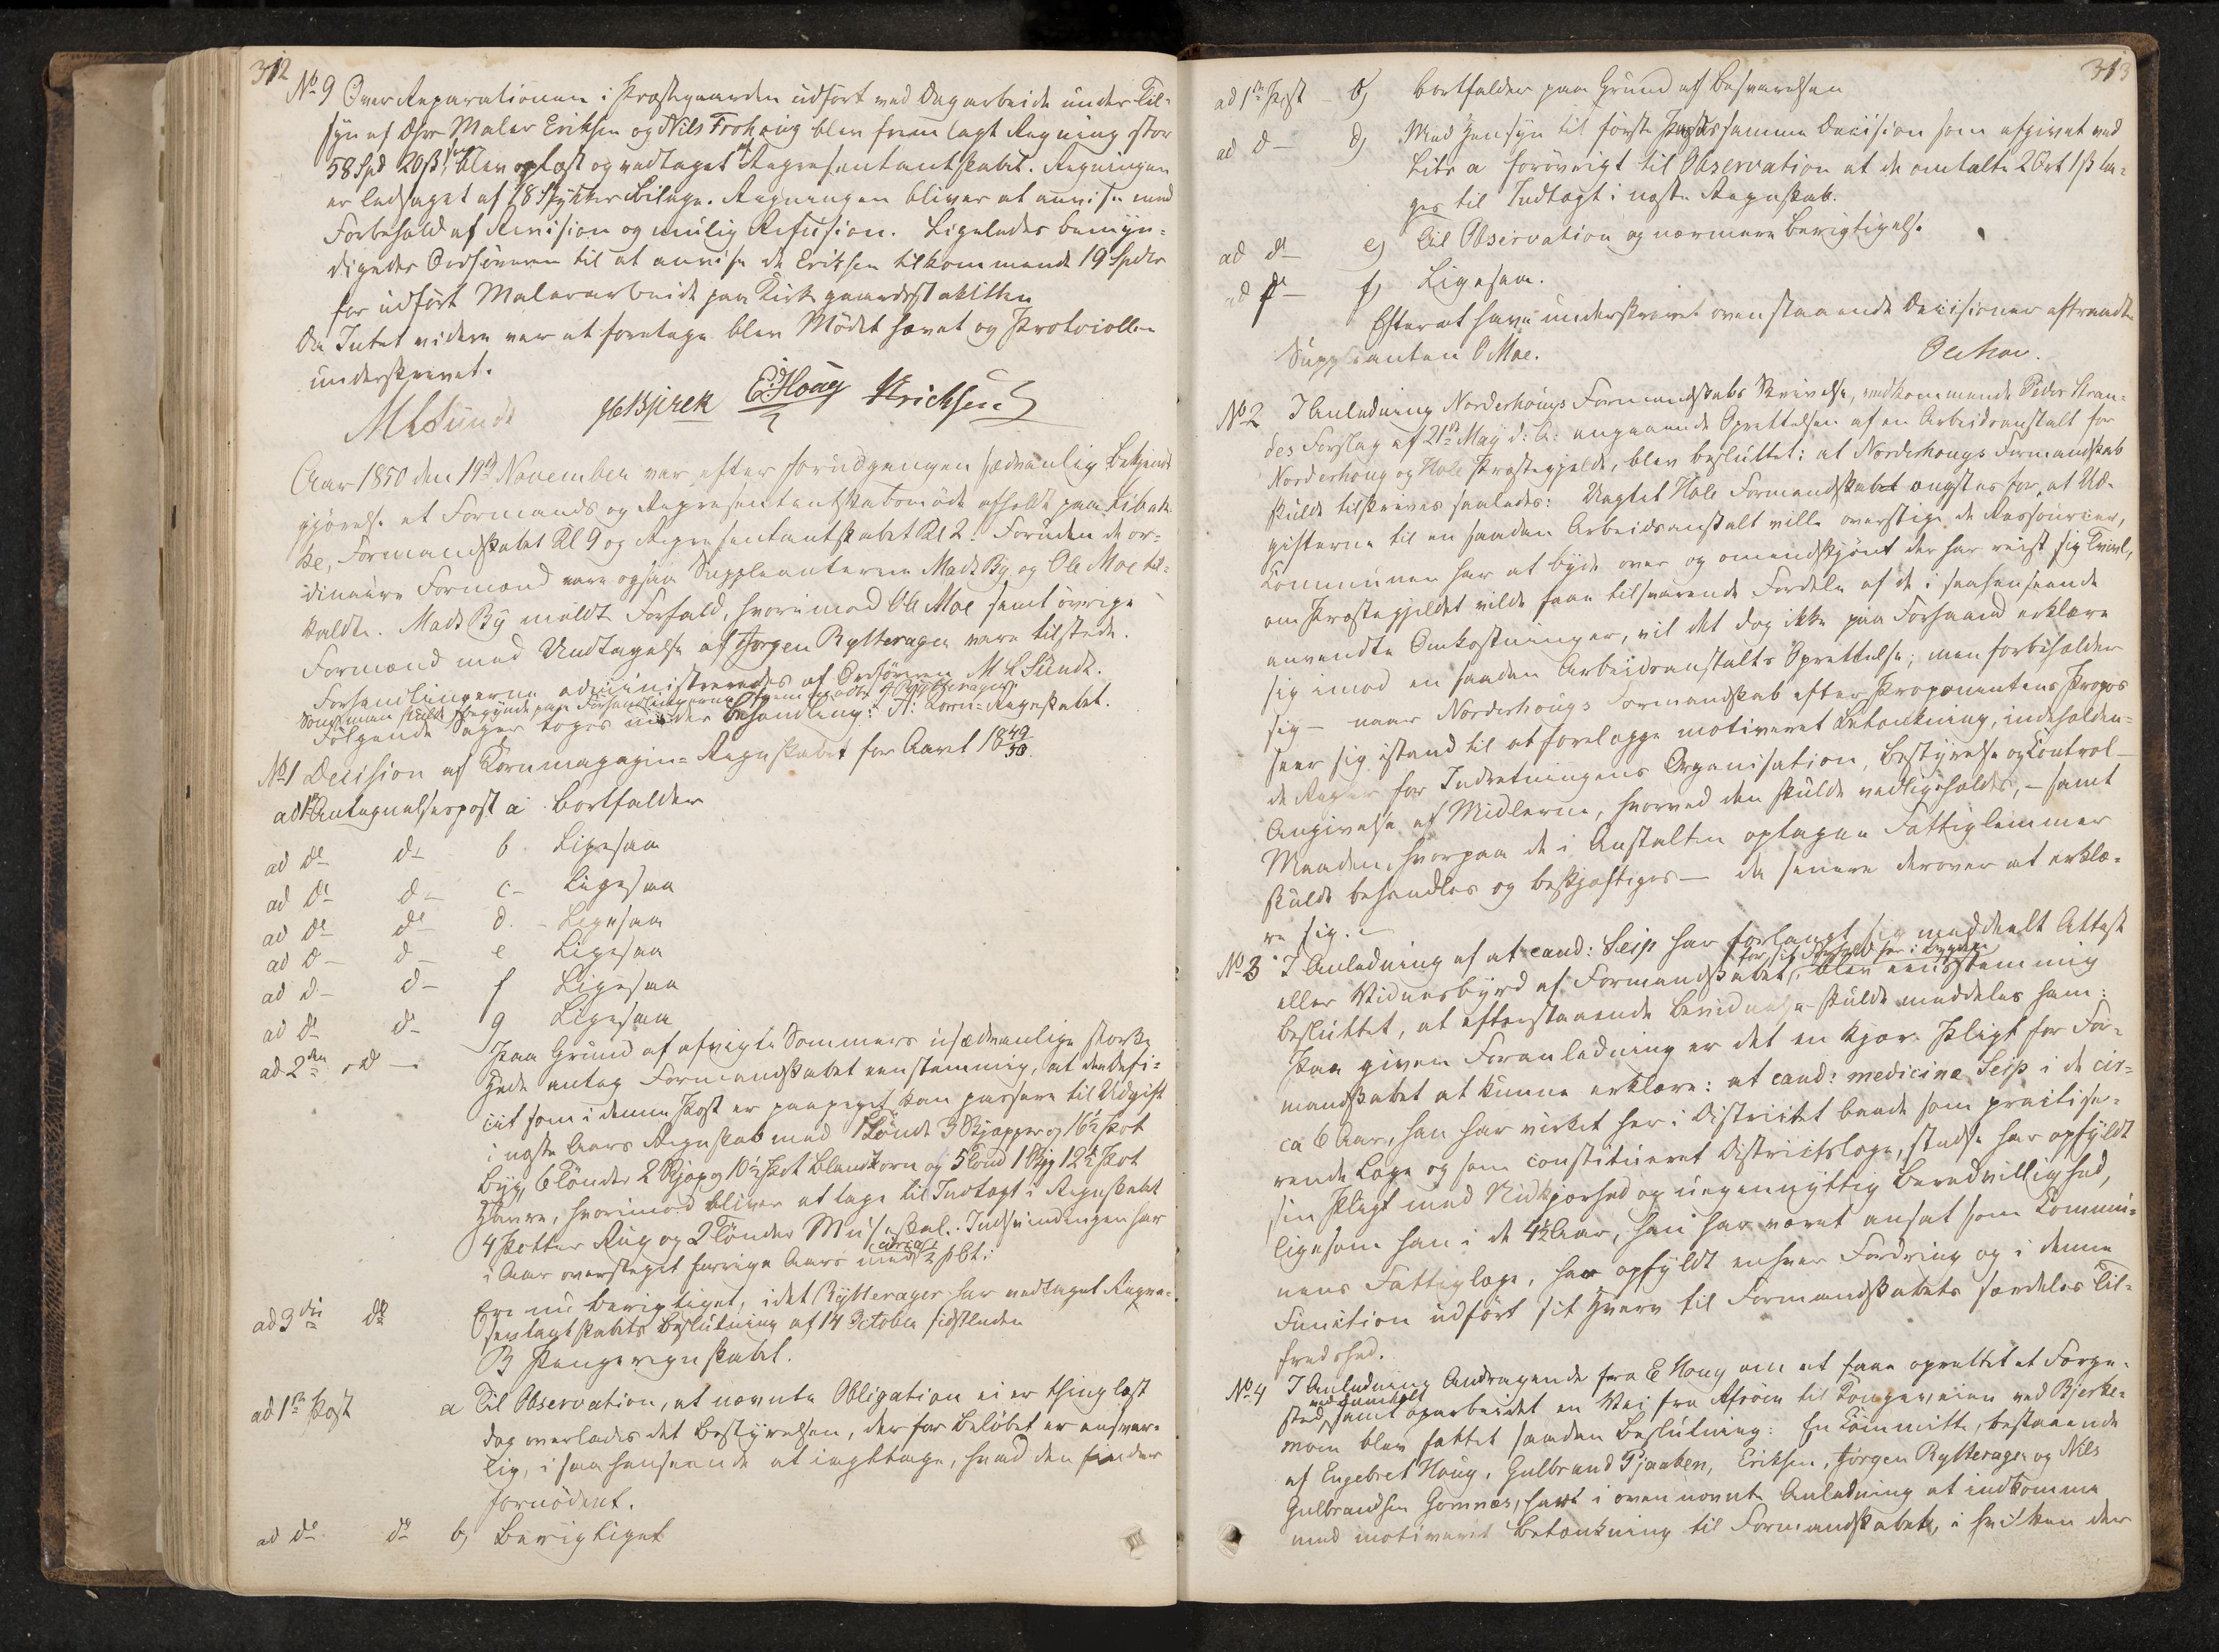 312
No 9 Over Reparationen i Præstegaarden udført ved Dagarbeide under Til-
syn af Dhrr Maler Eriksen og Nils Frohoug blev fremlagt Regning stor
58 Spd 20 ß, blev oplæst og vedtaget Repræsentantskabet. Regningen
er ledsaget af 18 Stykker Bilage. Regningen bliver at anvise med
Forbehold af Revision og mulig Refusion. Ligeledes bemyn-
digedes Ordføreren til at anvise de Eriksen tilkommende 19 Spdlr
for udført Malerarbeide paa Kirkegaardsstakittet
Da Intet videre var at foretage blev Mødet hævet og Protocollen
underskrevet.
M L Sundt E. Houg Erichsen
Aar 1850 den 19de November var efter forudgangen sædvanlig Bekjendt-
gjørelse et Formands og Repræsentantskabsmøde afholdt paa Libak-
ke, Formandskabet Kl 9 og Repræsentantskabet Kl 2. Foruden de or-
dinaire Formænd vare ogsaa Suppleanterne Mads By og Ole Moe til-
kaldte. Mads By meldte Forfald, hvorimod Ole Moe samt øvrige
Formænd med Undtagelse af Jørgen Rytterager vare tilstede.
Forhandlingerne administreredes af Ordføreren M L Sundt.
Som man skulde begynde paa Forhandlingerne fremmødte J. Rytterager.
Følgende Sager toges under Behandling: A: Korn-Regnskabet.
No 1 Decision af Kornmagazin-Regnskabet for Aaret 1849/50.
ad 1ste Antegnelsespost a bortfalder
ad do do b Ligesaa
ad do do c Ligesaa
ad do do d. Ligesaa
ad do do e Ligesaa
ad do do f Ligesaa
ad do do g Ligesaa
ad 2den do Paa Grund af afvigte Sommers usædvanlige stærke
Hede antog Formandskabet eenstemmig, at den Defi-
cit som i denne Post er paapeget kan passere til Udgift
i næste Aars Regnskab med 1 Tønde 3 Skjæpper og 16½ Pot
Byg, 6 Tønder 2 Skjæp og 10½ Pot Blandkorn og 5 Tønd 1 Skjp 12½ Pot
Havre, hvorimod bliver at tage til Indtægt i Regnskabet
4 Potter Rug og 2 Tønder Mu Indsvindingen har
i Aar oversteget forrige Aars med circa ½ pCt:
ad 3die do Ere nu berigtiget, idet Rytterager har vedtaget Repræ-
sentantskabets Beslutning af 14 October sidstleden
B Pengeregnskabet.
ad 1ste Post a Til Observation, at nævnte Obligation ei er thinglæst
dog overlades det Bestyrelsen, der for Beløbet er ansvar-
lig, i saa henseende at iagttage, hvad den finder
fornødent.
ad do do b) Berigtiget
313
ad 1ste Post c) bortfalder paa Grund af Besvarelsen
ad do d) Med Hensyn til første Passus samme Decision som afgivet ved
Litr a forøvrigt til Observation at de omtalte 2 Ort 1 ß ta-
ges til Indtægt i næste Regnskab.
ad do e) Til Observation og nærmere Berigtigelse
ad do f) Ligesaa.
Efter at have underskrevet ovenstaaende Decisioner aftraadte
Suppleanten O Moe. O Moe.
No 2 I Anledning Norderhougs Formandskabs Skrivelse, vedkommende Peder Stran-
des Forslag af 21de May d: A: angaaende Oprettelsen af en Arbeidsanstalt for
Norderhoug og Hole Præstegjelde, blev besluttet: at Norderhougs Formandskab
skulde tilskrives saaledes: Uagtet Hole Formandskabet ængstes for, at Ud-
gifterne til en saadan Arbeidsanstalt ville overstige de Ressourcer,
Communen har at byde over og omendskjønt der har reist sig Tvivl,
om Præstegjeldet vilde faae tilsvarende Fordele af de i saa henseende
anvendte Omkostninger, vil det dog ikke paa Forhaand erklære
sig imod en saadan Arbeidsanstalts Oprettelse; men forbeholder
sig — naar Norderhougs Formandskab efter Proponentens Propos
seer sig istand til at forelægge motiveret Betænkning, indeholden-
de Regler for Indretningens Organisation, Bestyrelse og Control —
Angivelse af Midlerne, hvorved den skulde vedligeholdes, — samt
Maaden, hvorpaa de i Anstalten optagne Fattiglemmer
skulde behandles og beskjæftiges — da senere derover at erklæ-
re sig. —
No 3 I Anledning af at cand: Seip har forlangt sig meddeelt Attest
for sit Forhold her i Bygden
eller Vidnesbyrd af Formandskabet, blev eenstemmig
besluttet, at efterstaaende Bevidnelse skulde meddeles ham:
Paa given Foranledning er det en kjær Pligt for For-
mandskabet at kunne erklære: at cand: medicinæ Seip i de cir-
ca 6 Aar, han har virket her i Districtet baade som practise-
rende Læge og som constitueret Districtslæge, stedse har opfyldt
sin Pligt med Nidkjærhed og uegennyttig Beredvillighed,
ligesom han i de 4½ Aar, han har været ansat som Commu-
nens Fattiglæge, har opfyldt enhver Fordring og i denne
Function udført sit Hverv til Formandskabets særdeles Til-
fredshed.
No 4 I Anledning Andragende fra E Houg om at faae oprettet et Færge-
sted ved Sundet samt oparbeidet en Vei fra Alfvien til Kongeveien ved Bjerke-
moen blev fattet saadan Beslutning: En Committe, bestaaende
af Engebret Houg, Gulbrand Tjaaken, Eriksen, Jørgen Rytterager og Nils
Gulbrandsen Gomnæs, havde i ovennævnte Anledning at indkomme
med motiveret Betænkning til Formandskabet, i hvilken der